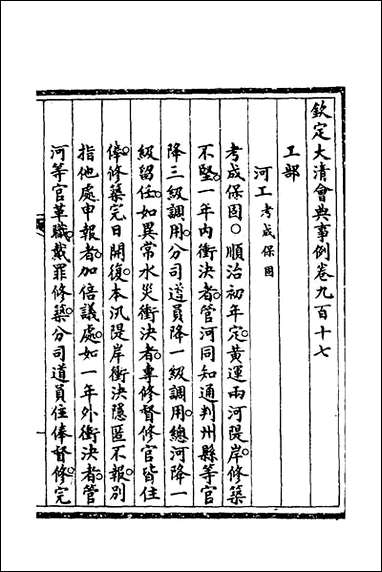 欽定大清會典事例卷九百十七
工部
河工考成保固
考成保固○順治初年定黃運兩河隄岸修築
不堅一年內衝決者管河同知通判州縣等官
降三級調用分司道員降一級調用總河降一
級留任如異常水災衝決者專修督修官皆住
俸修築完日開復本汛隄岸衝決隱匿不報別
指他處申報者加倍議處如一年外衝決者管
河等官革職戴罪修築分司道員住俸督修完